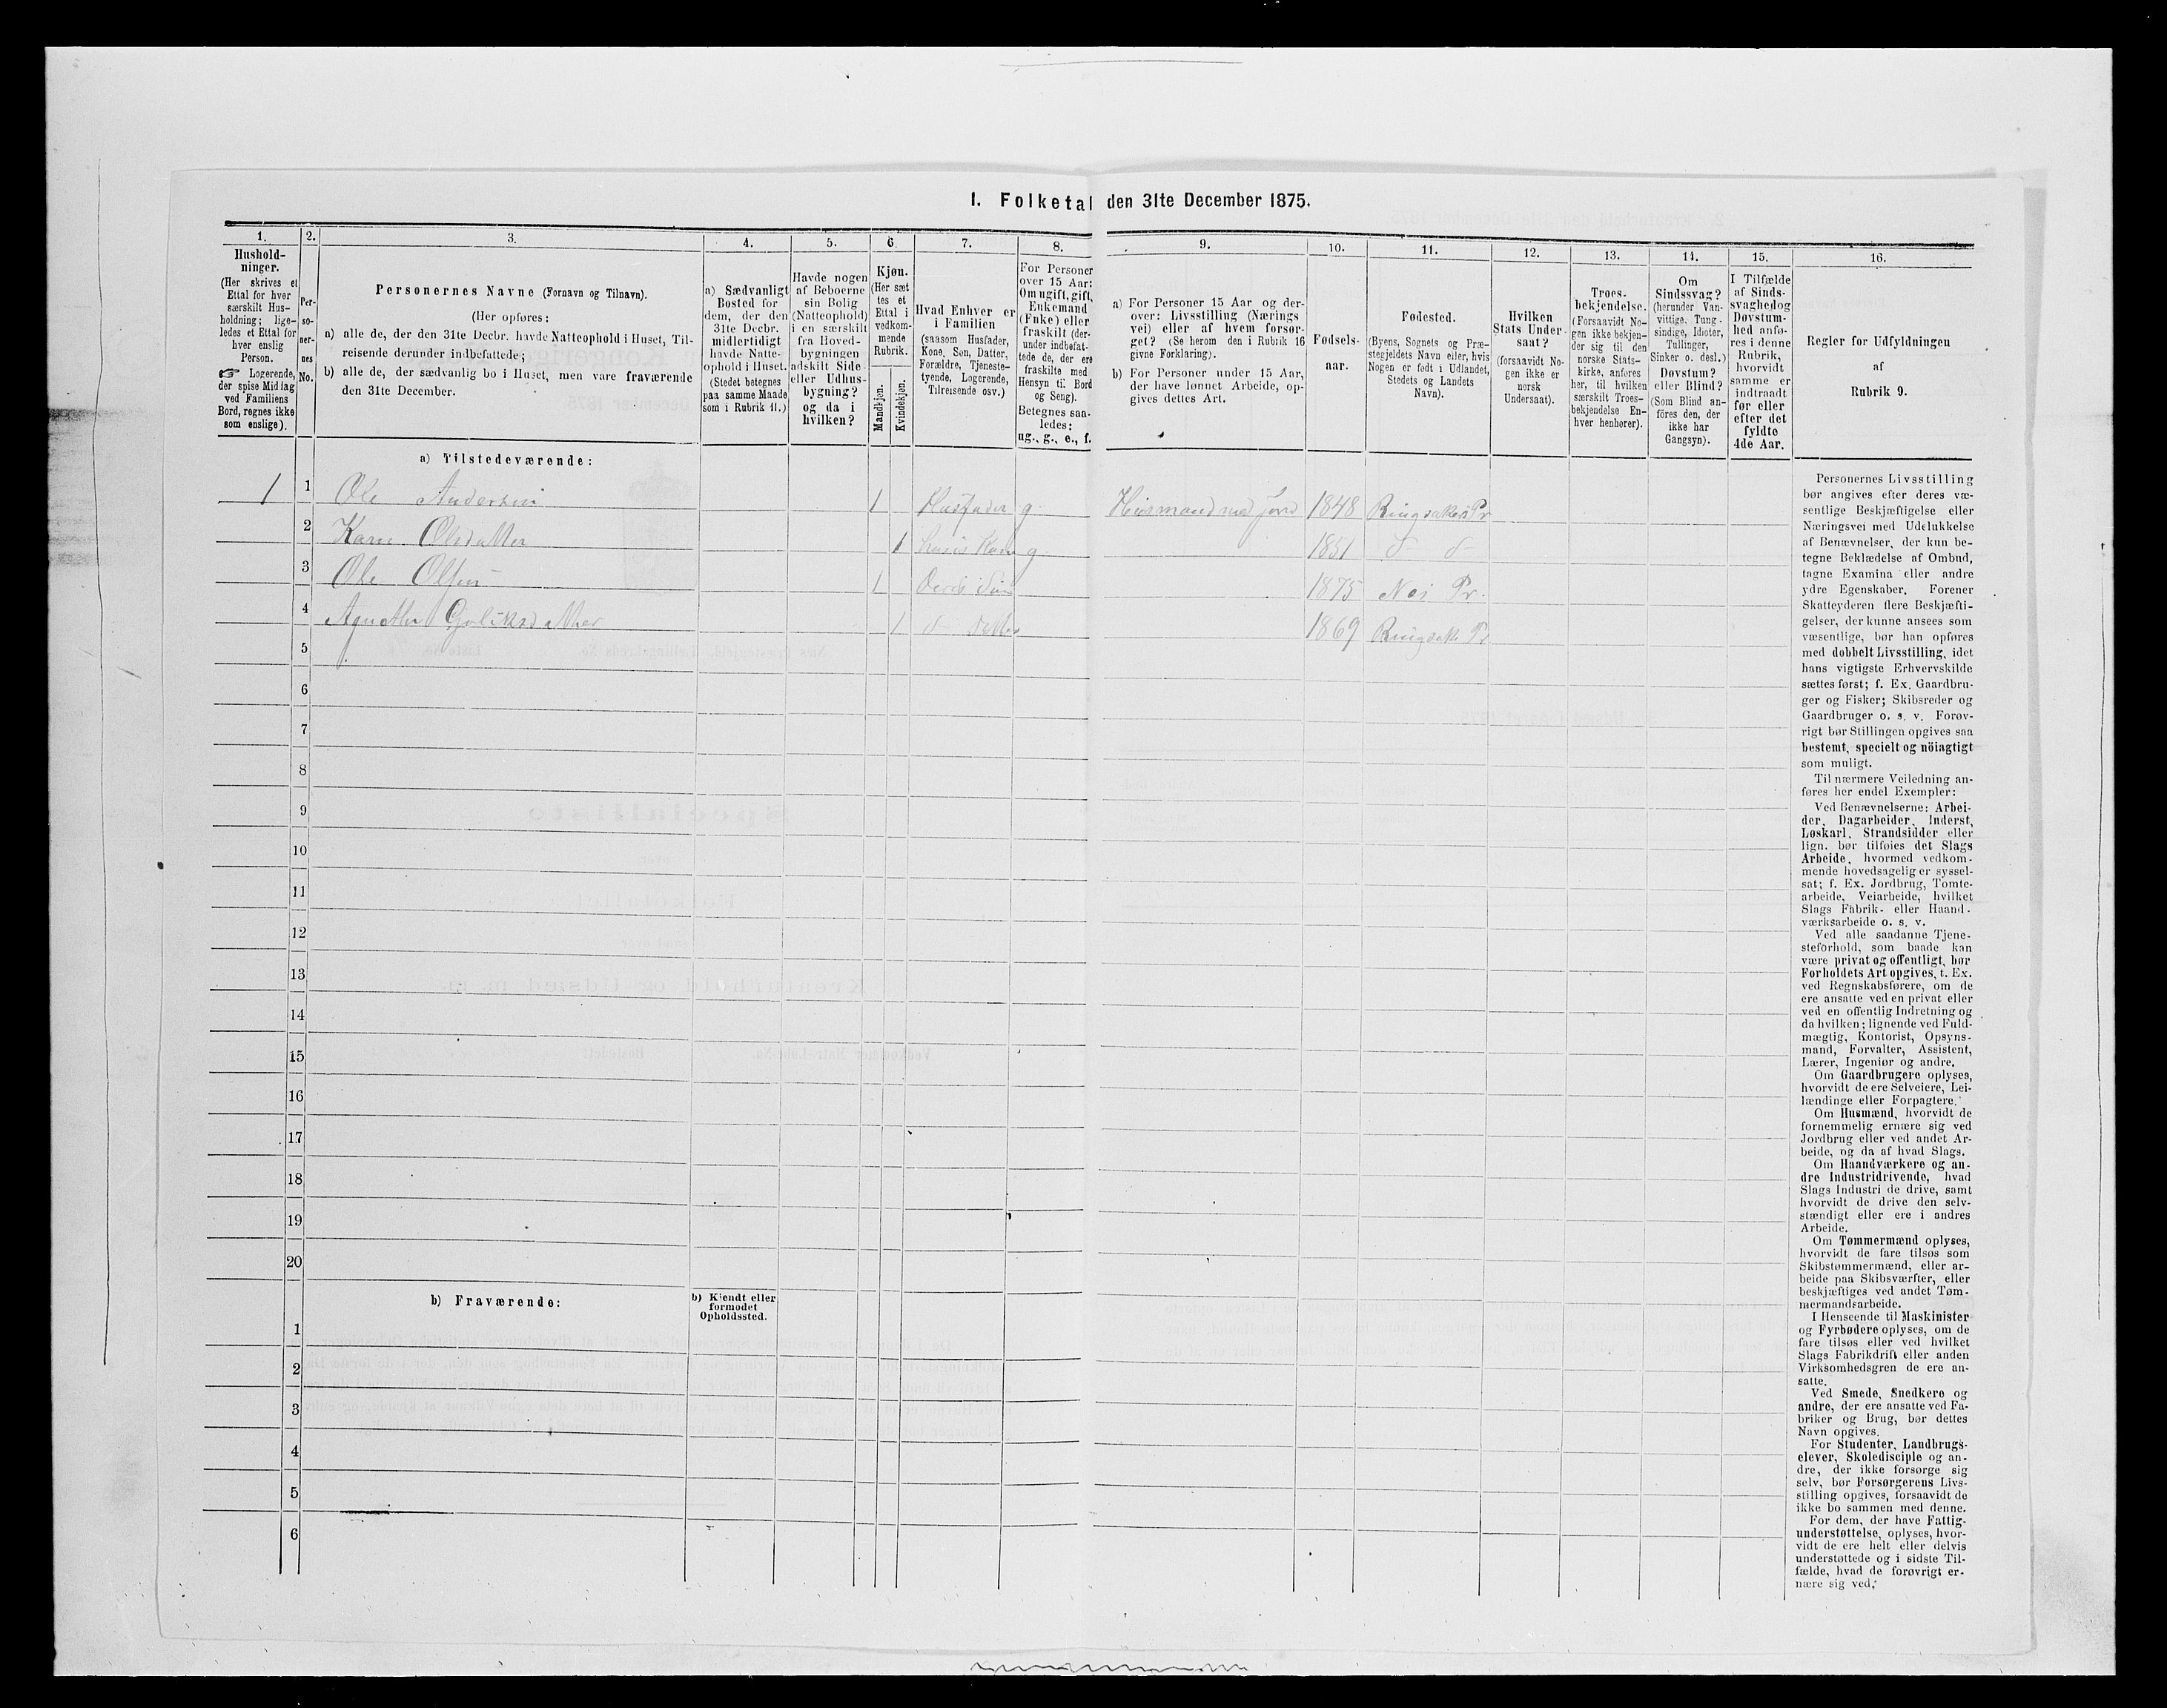 I. Folketal den 31te December 1875.
1.
Hushold-
ninger.
(Her skrives et
Ettal for hver
særskilt Hus-
holdning; lige-
ledes et Ettal for
hver enslig
Person.
☞ Logerende,
der spise Middag
ved Familiens
Bord, regnes ikke
som enslige).
2.
Per-
so-
ner-
nes
No.
3.
Personernes Navne (Fornavn og Tilnavn).
(Her opføres:
a) alle de, der den 31te Decbr. havde Natteophold i Huset, Til-
reisende derunder indbefattede;
b) alle de, der sædvanlig bo i Huset, men vare fraværende
den 31te December.
4.
a) Sædvanligt
Bosted for
dem, der den
31te Decbr.
midlertidigt
havde Natte-
ophold i Huset.
(Stedet betegnes
paa samme Maade
som i Rubrik 11.)
5.
Havde nogen
af Beboerne
sin Bolig
(Natteophold)
i en særskilt
fra Hoved-
bygningen
adskilt Side-
eller Udhus-
bygning?
og da i
hvilken?
6.
Kjøn.
(Her sæt-
tes et
Ettal i
vedkom-
mende
Rubrik.
Mandkjøn.
Kvindekjøn.
7.
Hvad Enhver er
i Familien
(saasom Husfader,
Kone, Søn, Datter,
Forældre, Tjeneste-
tyende, Logerende,
Tilreisende osv.)
8.
For Personer
over 15 Aar:
Om ugift, gift,
Enkemand
(Enke) eller
fraskilt (der-
under indbefat-
tede de, der ere
fraskilte med
Hensyn til Bord
og Seng).
Betegnes saa-
ledes:
ug., g., e., f.
9.
a) For Personer 15 Aar og der-
over: Livsstilling (Nærings-
vei) eller af hvem forsør-
get? (Se herom den i Rubik 16
givne Forklaring).
b) For Personer under 15 Aar,
der have lønnet Arbeide, op-
gives dettes Art.
10.
Fødsels-
aar.
11.
Fødested.
(Byens, Sognets og Præ-
stegjeldets Navn eller, hvis
Nogen er født i Udlandet,
Stedets og Landets
Navn).
12.
Hvilken
Stats Under-
saat?
(forsaavidt No-
gen ikke er
norsk
Undersaat).
13.
Troes-
bekjendelse.
(Forsaavidt No-
gen ikke bekjen-
der sig til den
norske Stats-
kirke, anføres
her, til hvilken
særskilt Troes-
bekjendelse En-
hver henhører).
14.
Om
Sindssvag?
(herunder Van-
vittige, Tung-
sindige, Idioter,
Tullinger,
Sinker o. desl.)
Døvstum?
eller Blind?
(Som Blind an-
føres den, der
ikke har
Gangsyn).
15.
I Tilfælde
af Sinds-
svaghed og
Døvstum-
hed anfø-
res i denne
Rubrik,
hvorvidt
samme er
indtraadt
før eller
efter det
fyldte
4de Aar.
16.
Regler for Udfyldningen
af
Rubrik 9.
a) Tilstedeværende:
1 1 Ole Andersen 1 Husfader g Husmand med Jord 1848 Ringsaker Pr
2 Karen Olsdatter 1 hans Kone g 1851 d– d–
3 Ole Olsen 1 deres Søn 1875 Næs Pr.
4 1 d– Datter 1869 Ringsak. Pr
5
6
7
8
9
10
11
12
13
14
15
16
17
18
19
20
b) Fraværende:
b) Kjendt eller
formodet
Opholdssted.
1
2
3
4
5
6
Personernes Livsstilling
bør angives efter deres væ-
sentlige Beskjæftigelse eller
Næringsvei med Udelukkelse
af Benævnelser, der kun be-
tegne Beklædelse af Ombud,
tagne Examina eller andre
ydre Egenskaber. Forener
Skatteyderen flere Beskjæfti-
gelser, der kunne ansees som
væsentlige, bør han opføres
med dobbelt Livsstilling, idet
hans vigtigste Erhvervskilde
sættes først; f. Ex. Gaardbru-
ger og Fisker; Skibsreder og
Gaardbruger o. s. v. Forøv-
rigt bør Stillingen opgives saa
bestemt, specielt og nöiagtigt
som muligt.
Til nærmere Veiledning an-
føres her endel Exempler:
Ved Benævnelserne: Arbei-
der, Dagarbeider, Inderst,
Løskarl, Strandsidder eller
lign. bør tilføies det Slags
Arbeide, hvormed vedkom-
mende hovedsagelig er syssel-
sat; f. Ex. Jordbrug, Tomte-
arbeide, Veiarbeide, hvilket
Slags Fabrik- eller Haand-
værksarbeide o. s. v.
Ved alle saadanne Tjene-
steforhold, som baade kan
være privat og offentligt, bør
Forholdets Art opgives, t. Ex.
ved Regnskabsførere, om de
ere ansatte ved en privat eller
ved en offentlig Indretning og
da hvilken; lignende ved Fuld-
mægtig, Kontorist, Opsyns-
mand, Forvalter, Assistent,
Lærer, Ingeniør og andre.
Om Gaardbrugere oplyses,
hvorvidt de ere Selveiere, Lei-
lændinge eller Forpagtere.
Om Husmænd, hvorvidt de
fornemmelig ernære sig ved
Jordbrug eller ved andet Ar-
beide, og da af hvad Slags.
Om Haandværkere og an-
dre Industridrivende, hvad
Slags Industri de drive, samt
hvorvidt de drive den selv-
stændigt eller ere i andres
Arbeide.
Om Tømmermænd oplyses,
hvorvidt de fare tilsøs som
Skibstømmermænd, eller ar-
beide paa Skibsværfter, eller
beskjæftiges ved andet Tøm-
mermandsarbeide.
I Henseende til Maskinister
og Fyrbødere oplyses, om de
fare tilsøs eller ved hvilket
Slags Fabrikdrift eller anden
Virksomhedsgren de ere an-
satte.
Ved Smede, Snedkere og
andre, der ere ansatte ved Fa-
briker og Brug, bør dettes
Navn opgives.
For Studenter, Landbrugs-
elever, Skoledisciple og an-
dre, der ikke forsørge sig
selv, bør Forsørgerens Livs-
stilling opgives, forsaavidt de
ikke bo sammen med denne.
For dem, der have Fattig-
understøttelse, oplyses, hvor-
vidt de ere helt eller delvis
understøttede og i sidste Til-
fælde, hvad de forøvrigt er-
nære sig ved.